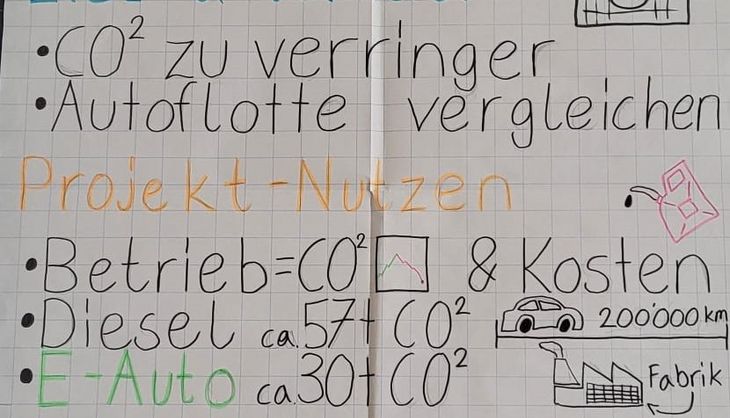 •CO² zu verringer
•Autoflotte vergleichen
Projekt-Nutzen
•Betrieb=CO² & Kosten
•Diesel ca.57t CO² 200'000km
•E-Auto ca.30t CO² Fabrik